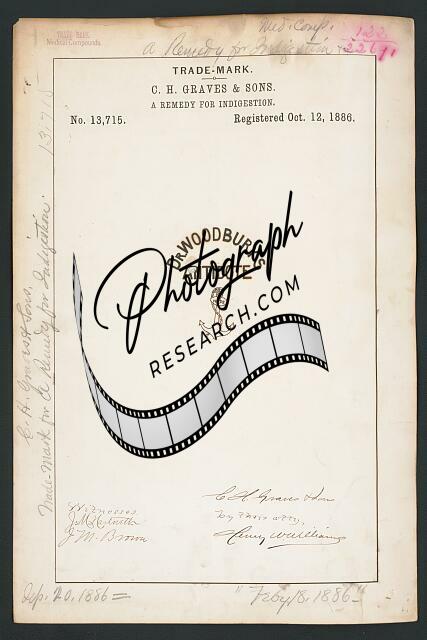 Med. Comp.
TRADE MARK
Medical Compounds.
a Remedy for Indigestion
122
TRADE-MARK.
C. H. GRAVES & SONS.
A REMEDY FOR INDIGESTION.
No. 13,715.
Registered Oct. 12, 1886.
C. H. Graves & Sons.
Trade-Mark for a Remedy for Indigestion. 13,715
DR WOODBURY'S
Photograph
RESEARCH.COM
Witnesses
J. M. Brown
C. H. Graves & Sons
by their atty,
Henry W. Williams
Sep. 20, 1886=
"Feby 18, 1886"